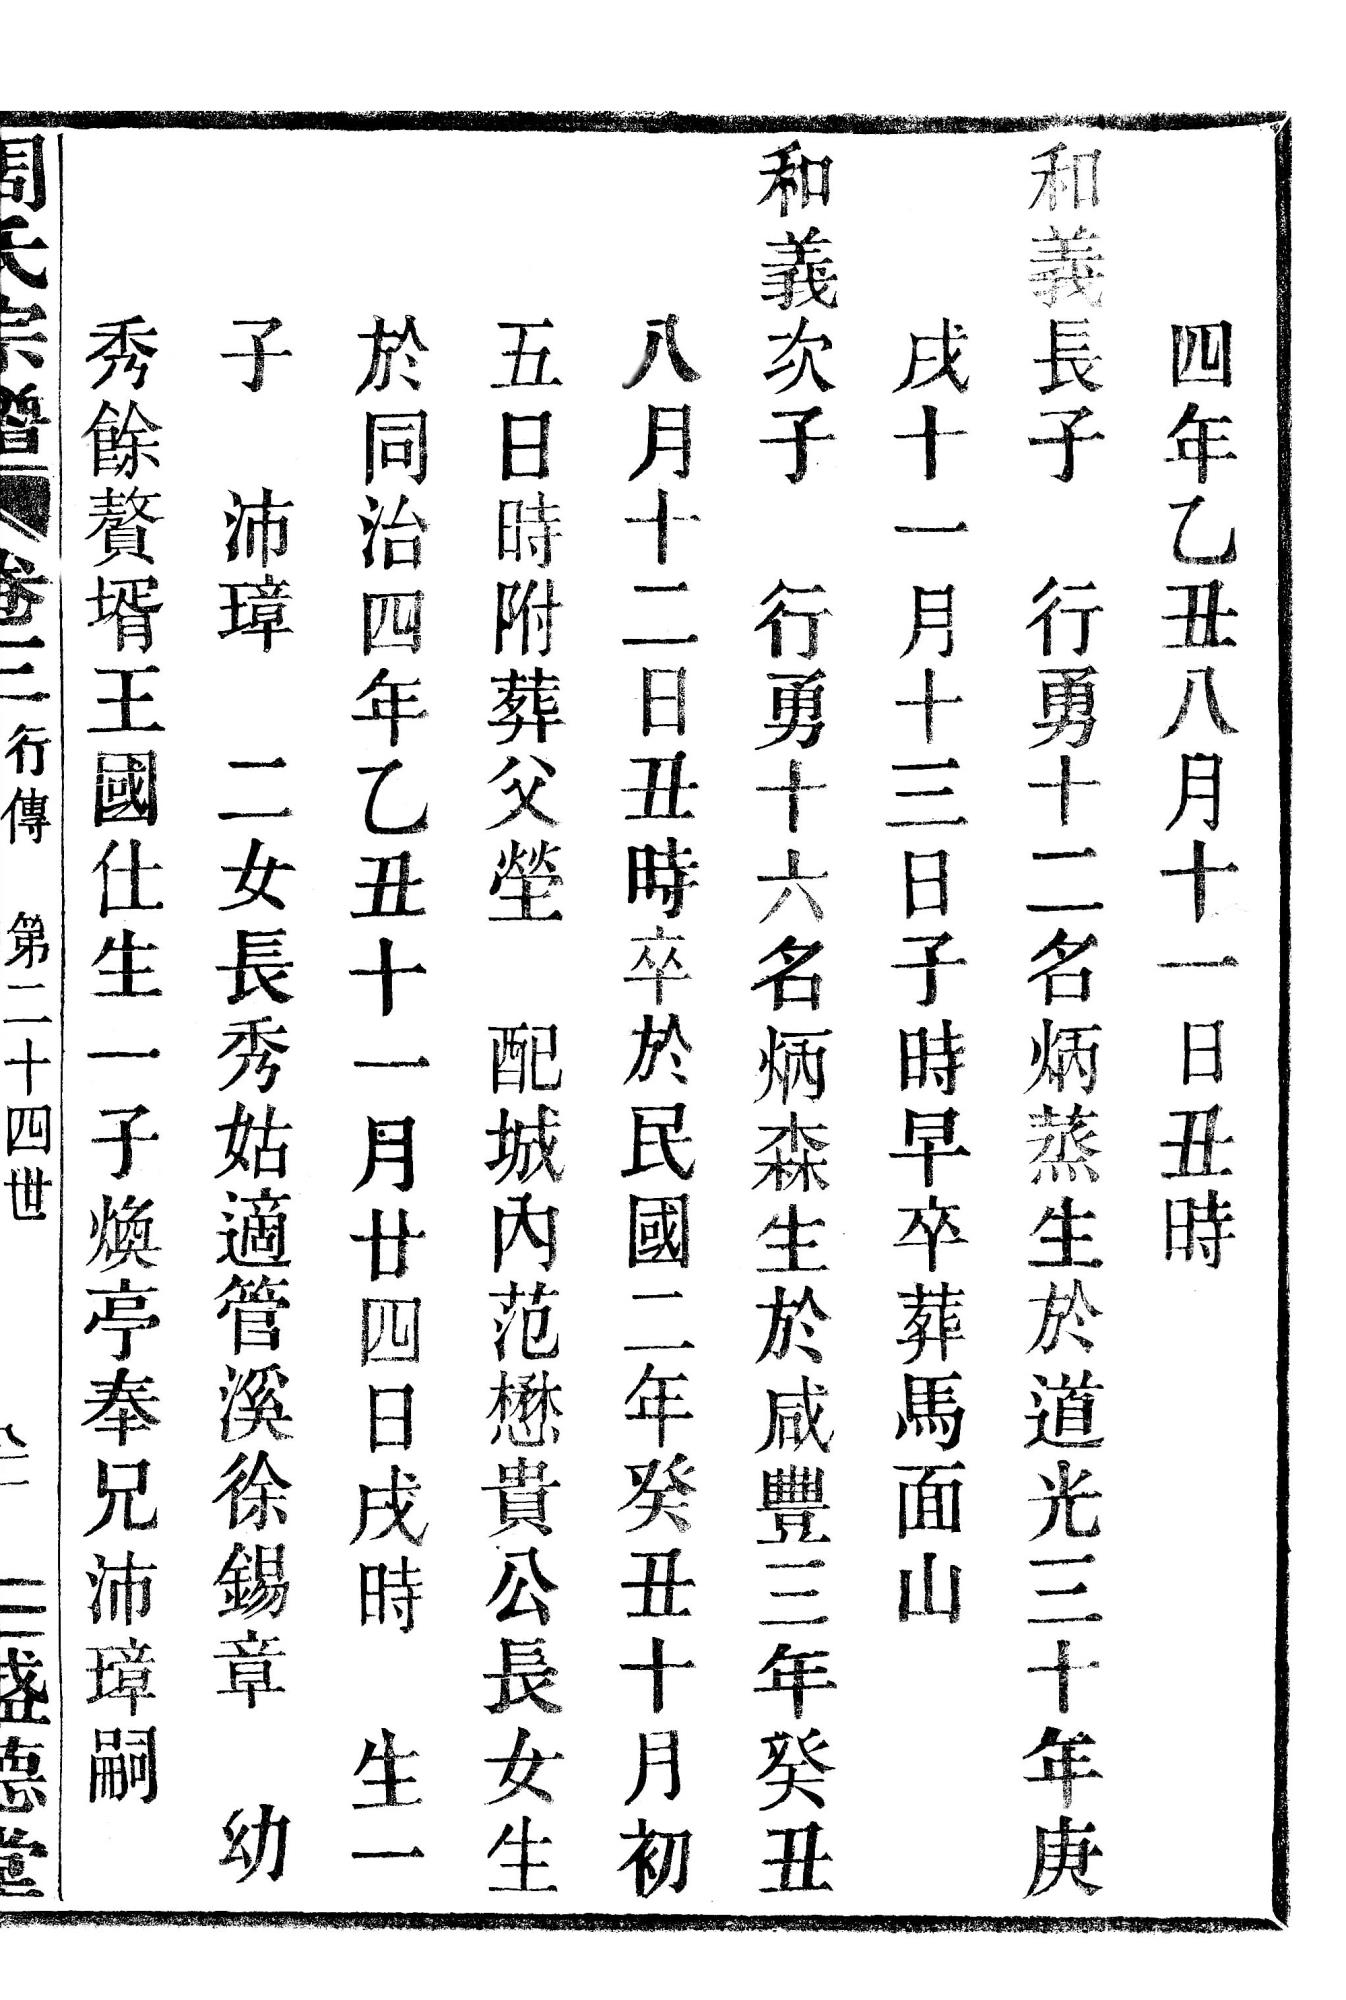 四年乙丑八月十一日丑時
和義長子　行勇十二名炳蒸生於道光三十年庚
戌十一月十三日子時早卒葬馬面山
和義次子　行勇十六名炳森生於咸豐三年癸丑
八月十二日丑時卒於民國二年癸丑十月初
五日時附葬父塋　配城內范懋貴公長女生
於同治四年乙丑十一月廿四日戌時　生一
子　沛璋　二女長秀姑適管溪徐錫章　幼
秀餘贅壻王國仕生一子煥亭奉兄沛璋嗣
周氏宗譜　卷三　行傳　第二十四世　三盛德堂